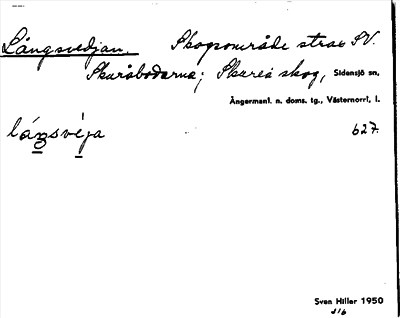 Långsvedjan. Skogsområde strax SV.
Skuråbodarna; Skureå skog, Sidensjö sn,
Ångermanl. n. doms. tg., Västernorrl. l.
lángsvéja 627.
Sven Hiller 1950